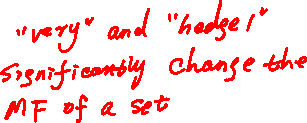 "very" and "hedge1"
significantly change the
MF of a set